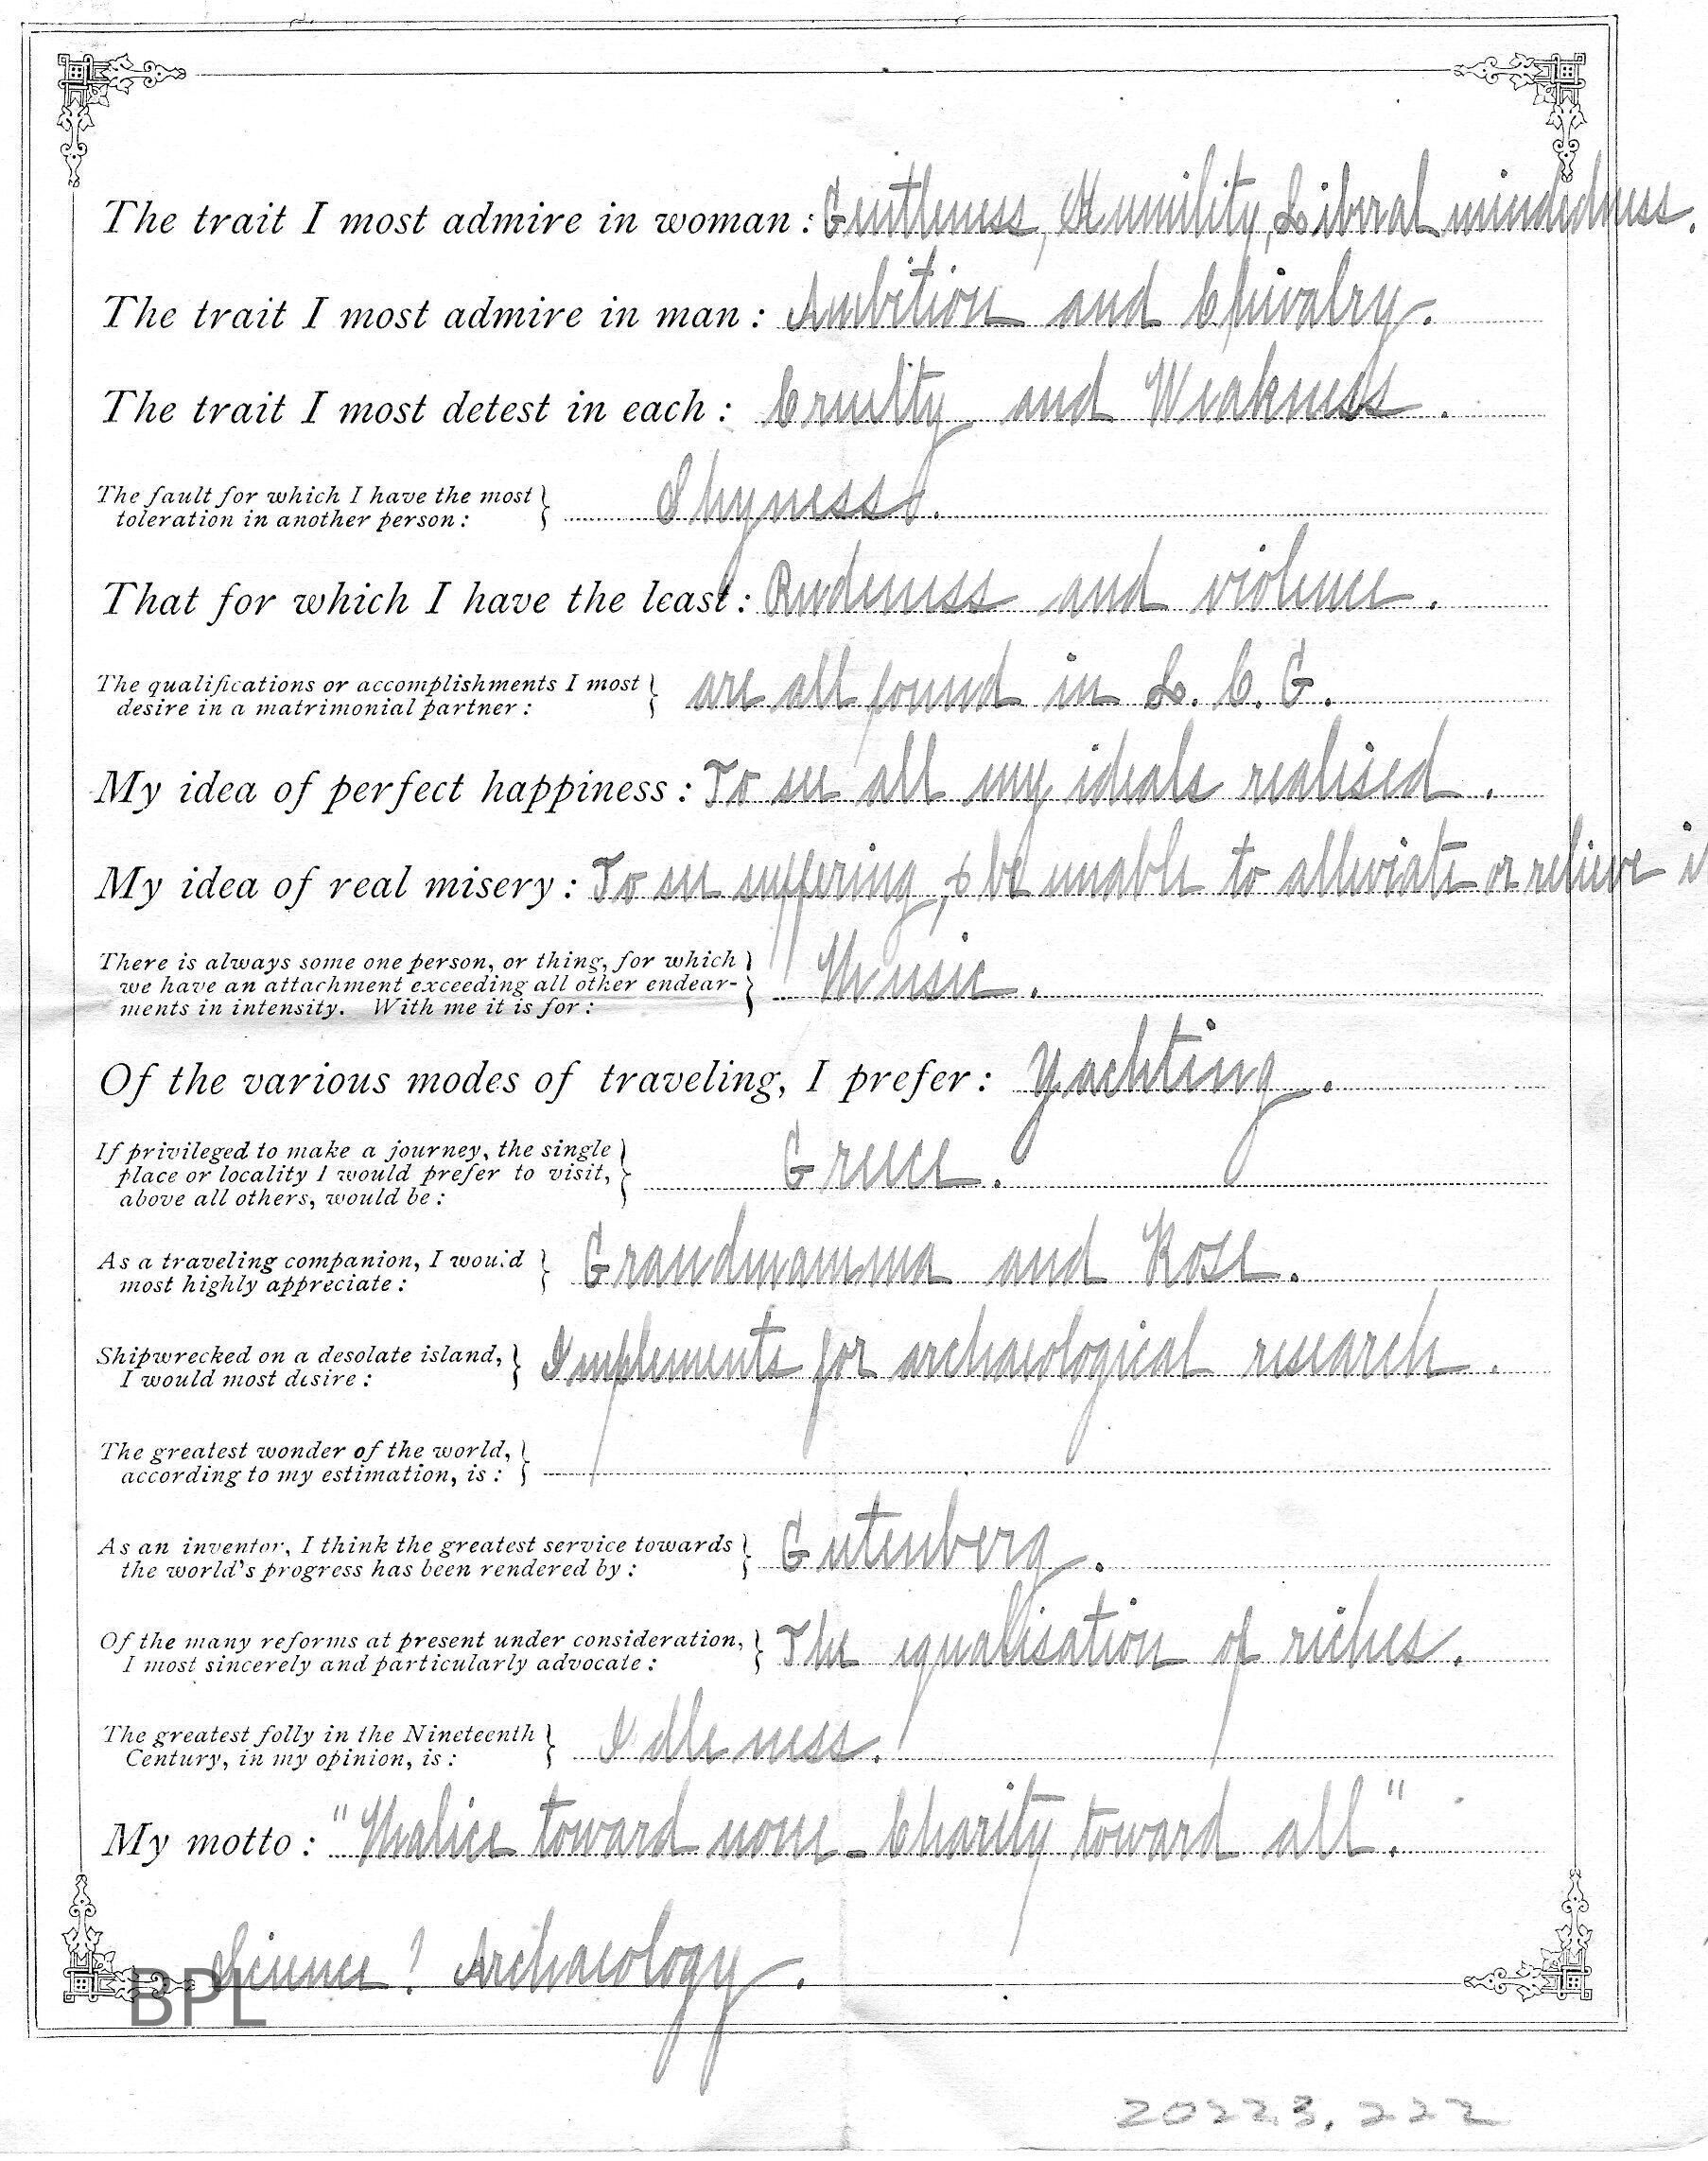 The trait I most admire in woman: Gentleness, Humility, Liberal mindedness.
The trait I most admire in man: Ambition and Chivalry.
The trait I most detest in each: Cruelty and Weakness.
The fault for which I have the most
toleration in another person: Shyness.
That for which I have the least: Rudeness and violence.
The qualifications or accomplishments I most
desire in a matrimonial partner: are all found in L. C. G.
My idea of perfect happiness: To see all my ideals realised.
My idea of real misery: To see suffering, & be unable to alleviate or relieve it
There is always some one person, or thing, for which
we have an attachment exceeding all other endear-
ments in intensity. With me it is for: Music.
Of the various modes of traveling, I prefer: Yachting.
If privileged to make a journey, the single
place or locality I would prefer to visit,
above all others, would be: Greece.
As a traveling companion, I would
most highly appreciate: Grandmamma and Rose.
Shipwrecked on a desolate island,
I would most desire: Implements for archaeological research.
The greatest wonder of the world,
according to my estimation, is:
As an inventor, I think the greatest service towards
the world's progress has been rendered by: Gutenberg.
Of the many reforms at present under consideration,
I most sincerely and particularly advocate: The equalisation of riches.
The greatest folly in the Nineteenth
Century, in my opinion, is: Idleness.
My motto: "Malice toward none - Charity toward all."
Science? Archaeology.
BPL
2022.3.222